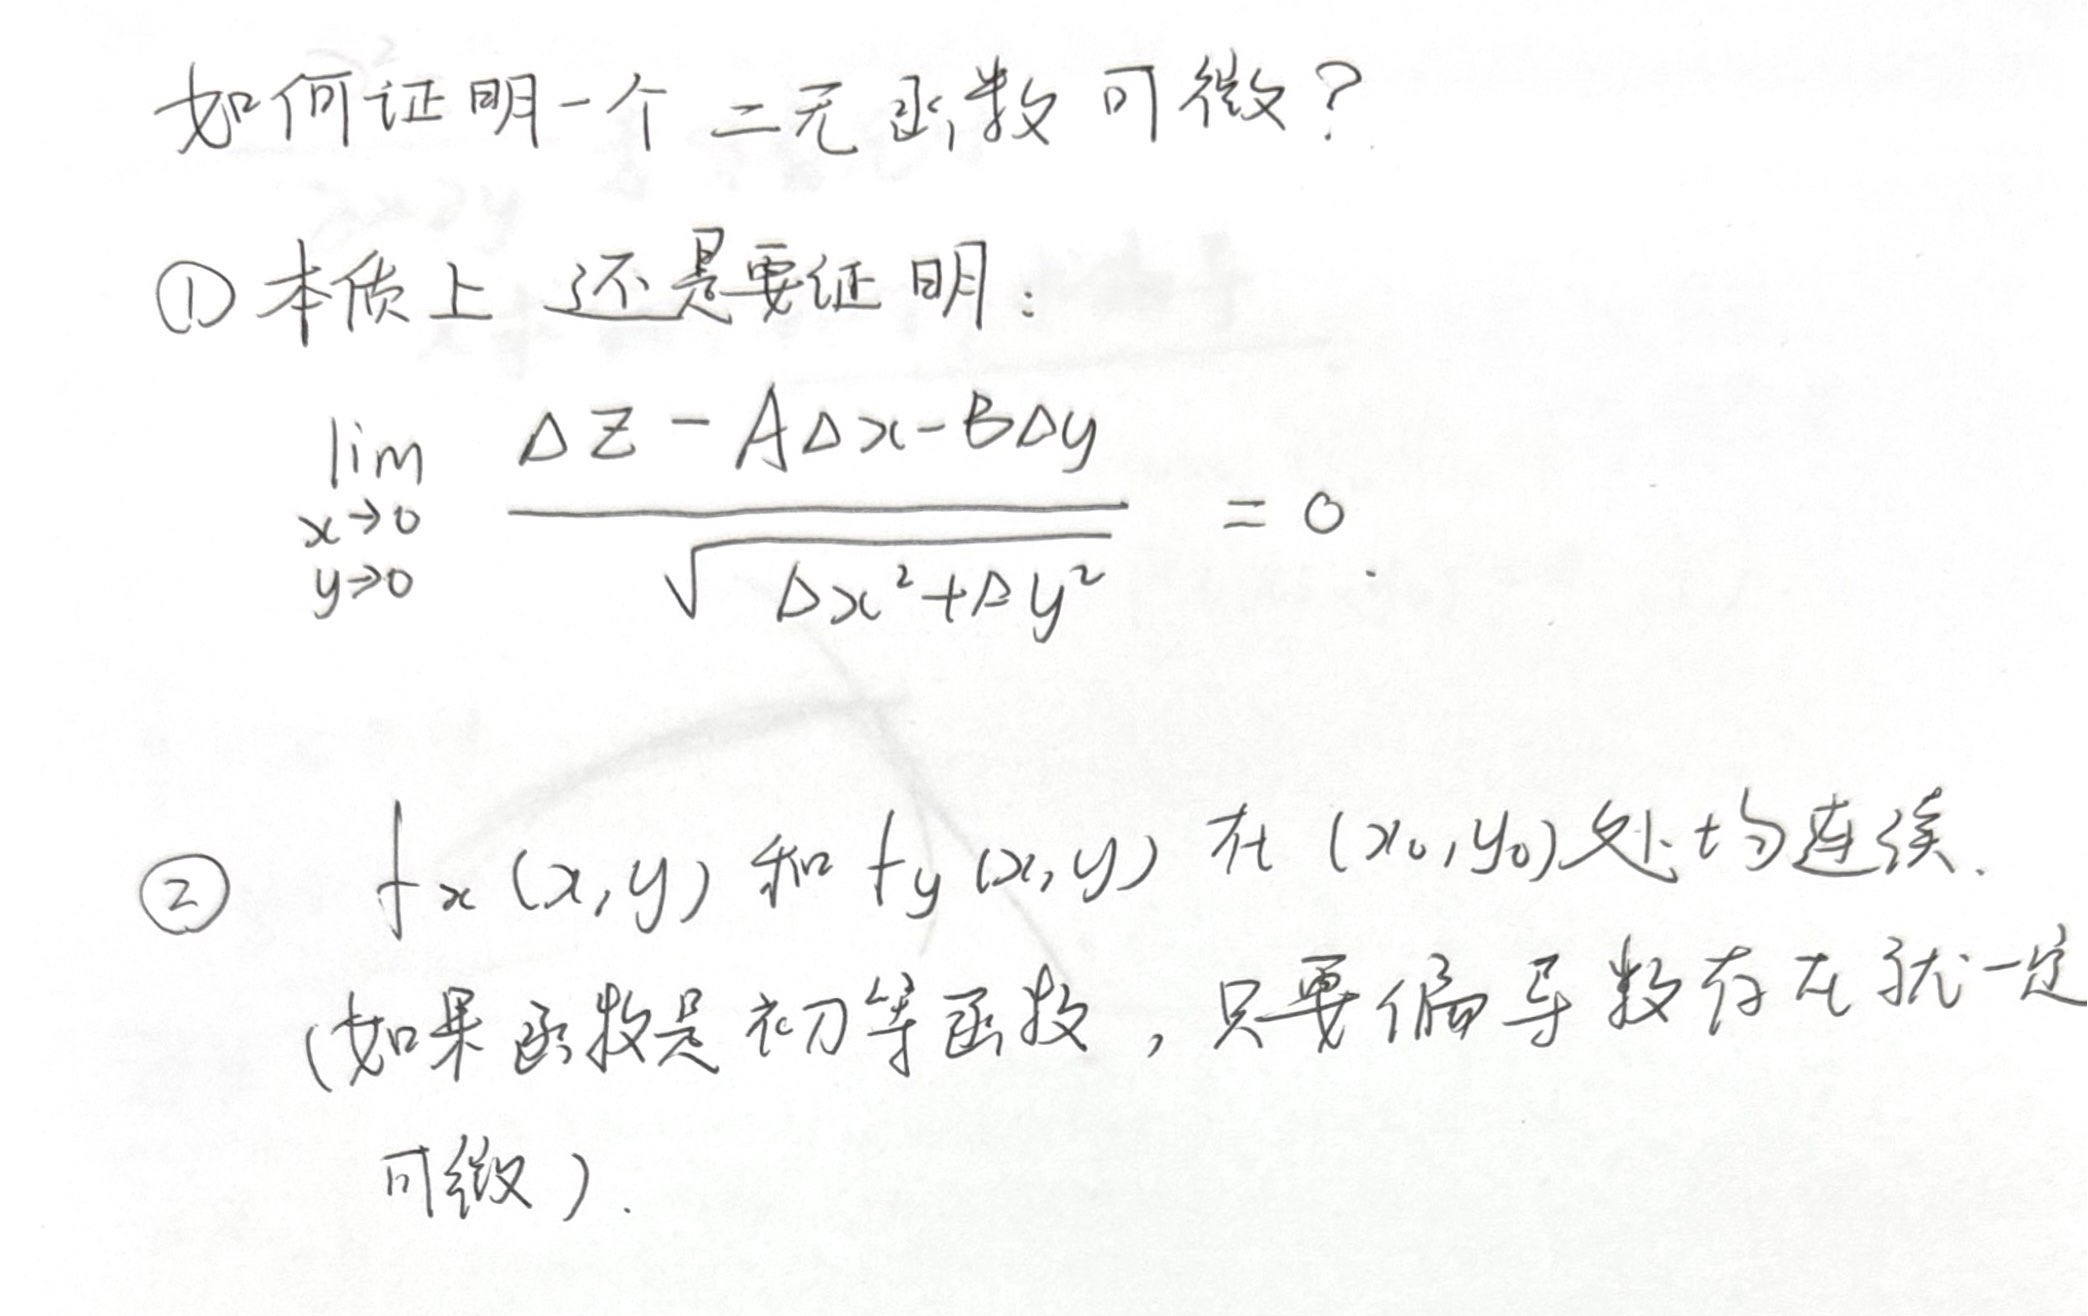 如何证明一个二元函数可微?
①本质上还是要证明:
lim x→0 y→0 (ΔZ - AΔx - BΔy) / √(Δx²+Δy²) = 0.
② fx(x,y) 和 fy(x,y) 在 (x₀,y₀) 处均连续.
(如果函数是初等函数,只要偏导数存在就一定
可微).